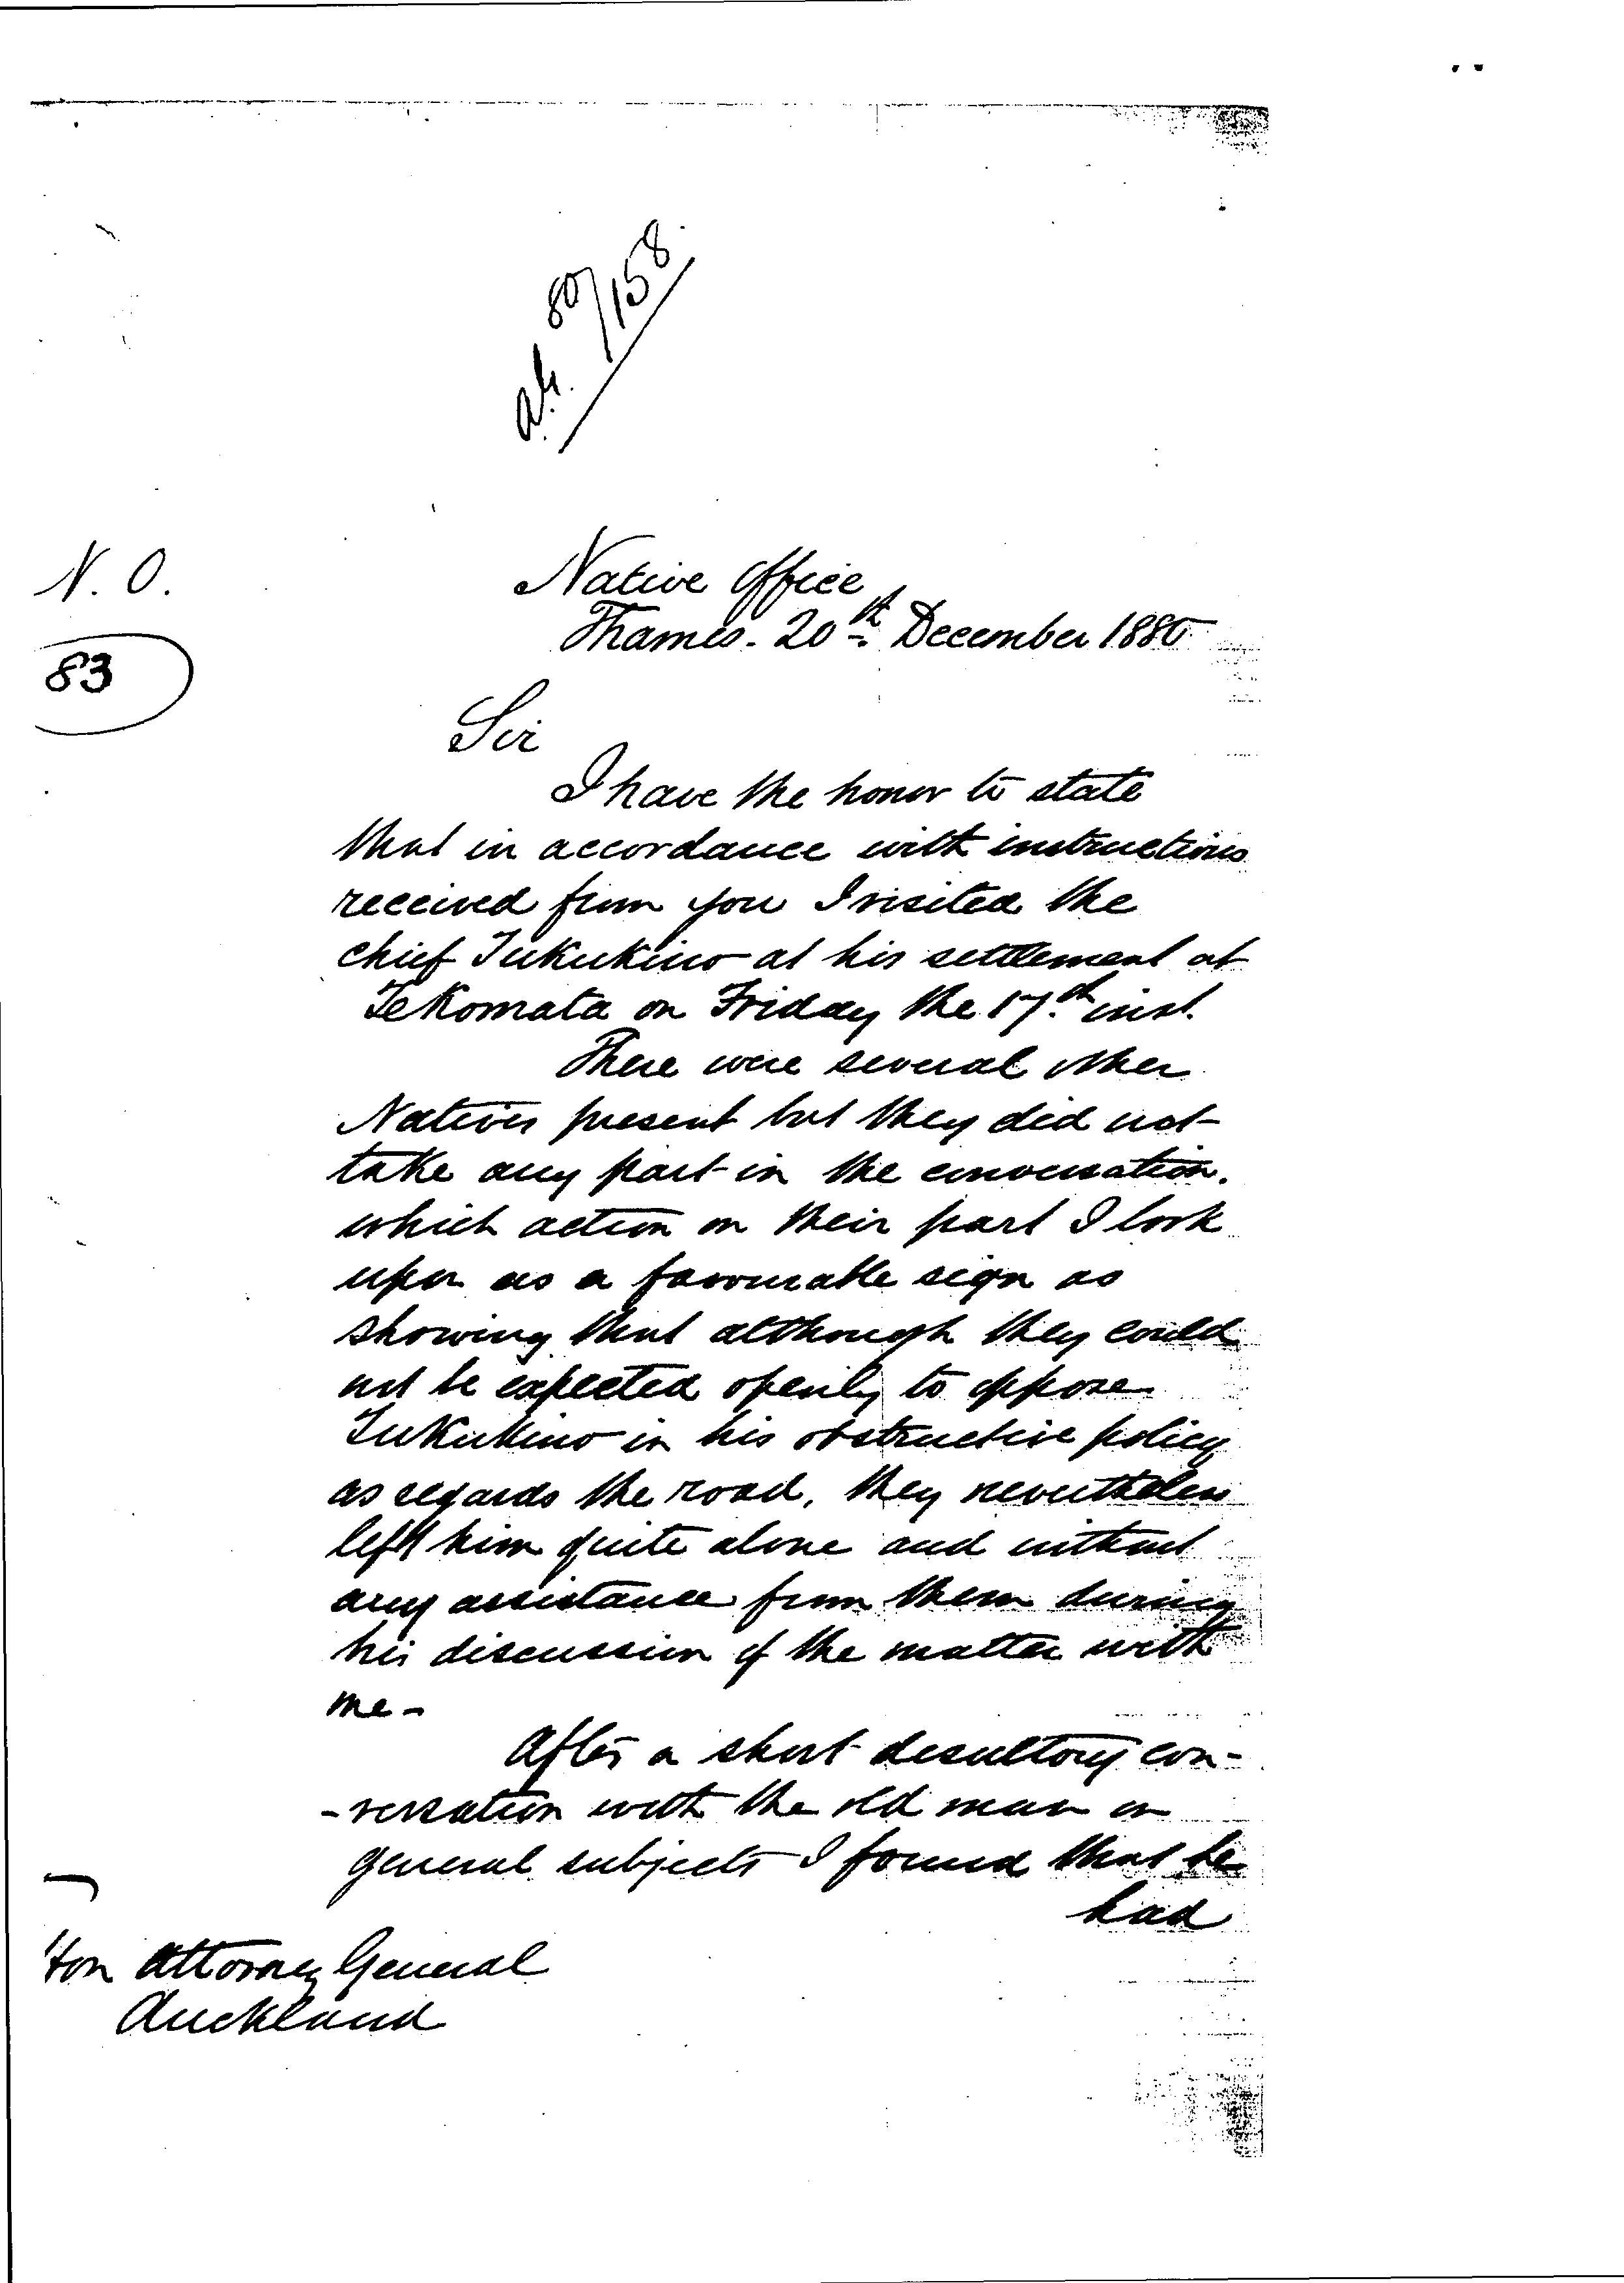 80/158
N. O.
83
Native Office
Thames. 20th December 1880
Sir
I have the honor to state
that in accordance with instructions
received from you I visited the
chief Tukukino at his settlement at
Te Komata on Friday the 17th inst.
There were several other
Natives present but they did not
take any part in the conversation.
which action on their part I look
upon as a favourable sign as
showing that although they could
not be expected openly to oppose
Tukukino in his obstructive policy
as regards the road, they nevertheless
left him quite alone and without
any assistance from them during
his discussion of the matter with
me -
After a short desultory con-
-versation with the old man on
general subjects I found that he
had
Hon Attorney General
Auckland